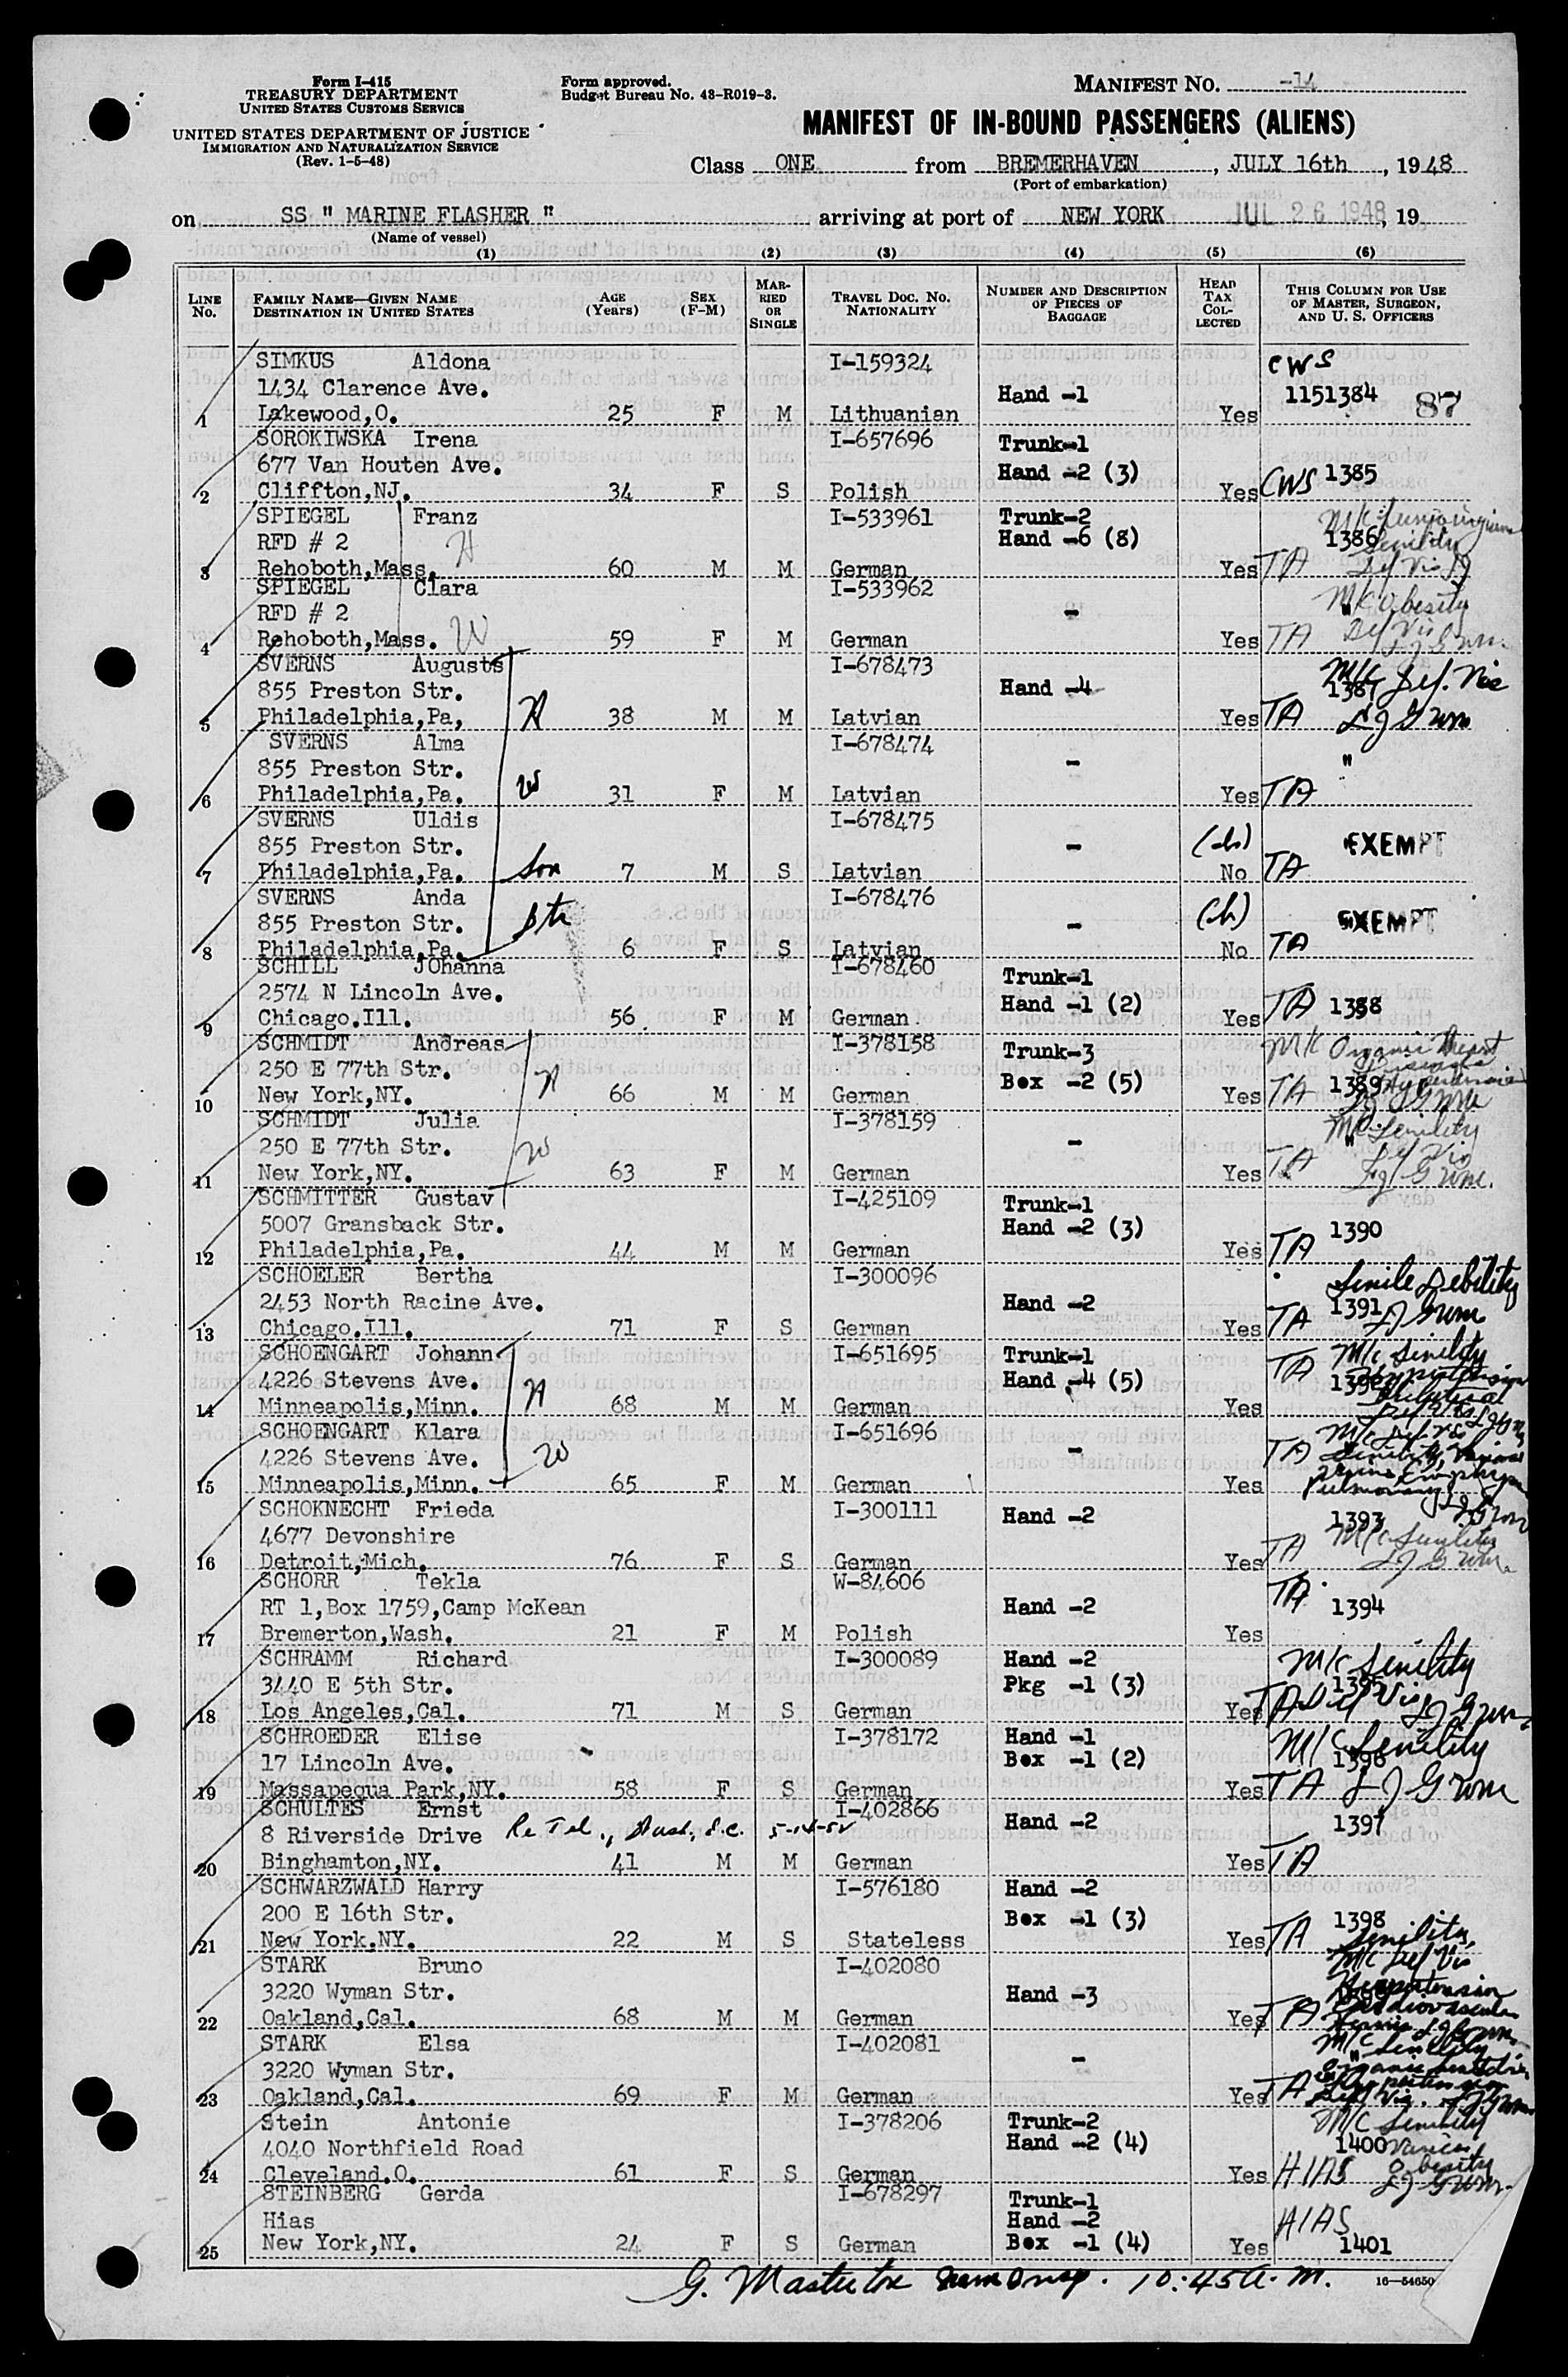 Form I-415
TREASURY DEPARTMENT
UNITED STATES CUSTOMS SERVICE
UNITED STATES DEPARTMENT OF JUSTICE
IMMIGRATION AND NATURALIZATION SERVICE
(Rev. 1-5-48)
Form approved.
Budget Bureau No. 43-R019-3.
MANIFEST NO. -14
MANIFEST OF IN-BOUND PASSENGERS (ALIENS)
Class ONE from BREMERHAVEN, JULY 16th, 1948
(Port of embarkation)
on SS " MARINE FLASHER " arriving at port of NEW YORK JUL 26 1948, 19
(Name of vessel)
(1) (2) (3) (4) (5) (6)
LINE No. FAMILY NAME—GIVEN NAME DESTINATION IN UNITED STATES AGE (Years) SEX (F-M) MARRIED OR SINGLE TRAVEL DOC. NO. NATIONALITY NUMBER AND DESCRIPTION OF PIECES OF BAGGAGE HEAD TAX COLLECTED THIS COLUMN FOR USE OF MASTER, SURGEON, AND U. S. OFFICERS
SIMKUS Aldona I-159324 CWS
1434 Clarence Ave. Hand -1 1151384 87
1 Lakewood,O. 25 F M Lithuanian Yes
SOROKIWSKA Irena I-657696 Trunk-1
677 Van Houten Ave. Hand -2 (3) 1385
2 Cliffton,NJ. 34 F S Polish Yes CWS
SPIEGEL Franz I-533961 Trunk-2 M/C
RFD # 2 H Hand -6 (8) 1386 Senility
3 Rehoboth,Mass. 60 M M German Yes TA Def Vis
SPIEGEL Clara I-533962 M/C Obesity
RFD # 2 - "
4 Rehoboth,Mass. W 59 F M German Yes TA Def Vis
SVERNS Augusts I-678473 M/C Def. Vis
855 Preston Str. Hand -4 1387
5 Philadelphia,Pa, H 38 M M Latvian Yes TA
SVERNS Alma I-678474
855 Preston Str. - "
6 Philadelphia,Pa. W 31 F M Latvian Yes TA
SVERNS Uldis I-678475
855 Preston Str. - EXEMPT
7 Philadelphia,Pa. Son 7 M S Latvian No TA
SVERNS Anda I-678476
855 Preston Str. - EXEMPT
8 Philadelphia,Pa. 6 F S Latvian No TA
SCHILL JOhanna I-678460 Trunk-1
2574 N Lincoln Ave. Hand -1 (2)
9 Chicago.Ill. 56 F M German Yes TA 1388
SCHMIDT Andreas I-378158 Trunk-3 M/C Organic Heart
250 E 77th Str. H Box -2 (5) 1389
10 New York,NY. 66 M M German Yes TA
SCHMIDT Julia I-378159 M/C Senility
250 E 77th Str. W - " Def Vis
11 New York,NY. 63 F M German Yes TA
SCHMITTER Gustav I-425109 Trunk-1
5007 Gransback Str. Hand -2 (3) 1390
12 Philadelphia,Pa. 44 M M German Yes TA
SCHOELER Bertha I-300096 Senile Debility
2453 North Racine Ave. Hand -2 1391
13 Chicago.Ill. 71 F S German Yes TA
SCHOENGART Johann I-651695 Trunk-1 M/C Senility
4226 Stevens Ave. H Hand -4 (5) TA 1392
14 Minneapolis,Minn. 68 M M German Yes
SCHOENGART Klara I-651696 M/C
4226 Stevens Ave. W - TA Senility
15 Minneapolis,Minn. 65 F M German Yes Pulmonary
SCHOKNECHT Frieda I-300111 Hand -2 1393
4677 Devonshire M/C Senility
16 Detroit,Mich. 76 F S German Yes TA
SCHORR Tekla W-84606 TA
RT 1,Box 1759,Camp McKean Hand -2 1394
17 Bremerton,Wash. 21 F M Polish Yes
SCHRAMM Richard I-300089 Hand -2 M/C Senility
3440 E 5th Str. Pkg -1 (3) 1395
18 Los Angeles,Cal. 71 M S German Yes TA Def Vis
SCHROEDER Elise I-378172 Hand -1 M/C Senility
17 Lincoln Ave. Box -1 (2) 1396
19 Massapequa Park,NY. 58 F S German Yes TA
SCHULTES Ernst I-402866 Hand -2 1397
8 Riverside Drive 5-14-52
20 Binghamton,NY. 41 M M German Yes TA
SCHWARZWALD Harry I-576180 Hand -2
200 E 16th Str. Box -1 (3) 1398
21 New York.NY. 22 M S Stateless Yes TA
STARK Bruno I-402080 Senility M/C Def Vis
3220 Wyman Str. Hand -3 Hypertension
22 Oakland,Cal. 68 M M German Yes TA
STARK Elsa I-402081 M/C Senility
3220 Wyman Str. - "
23 Oakland,Cal. 69 F M German Yes TA
Stein Antonie I-378206 Trunk-2 M/C Senility
4040 Northfield Road Hand -2 (4) 1400
24 Cleveland.O. 61 F S German Yes HIAS Obesity
STEINBERG Gerda I-678297 Trunk-1
Hias Hand -2 HIAS
25 New York,NY. 24 F S German Box -1 (4) Yes 1401
10:45 A.M. 16—54650